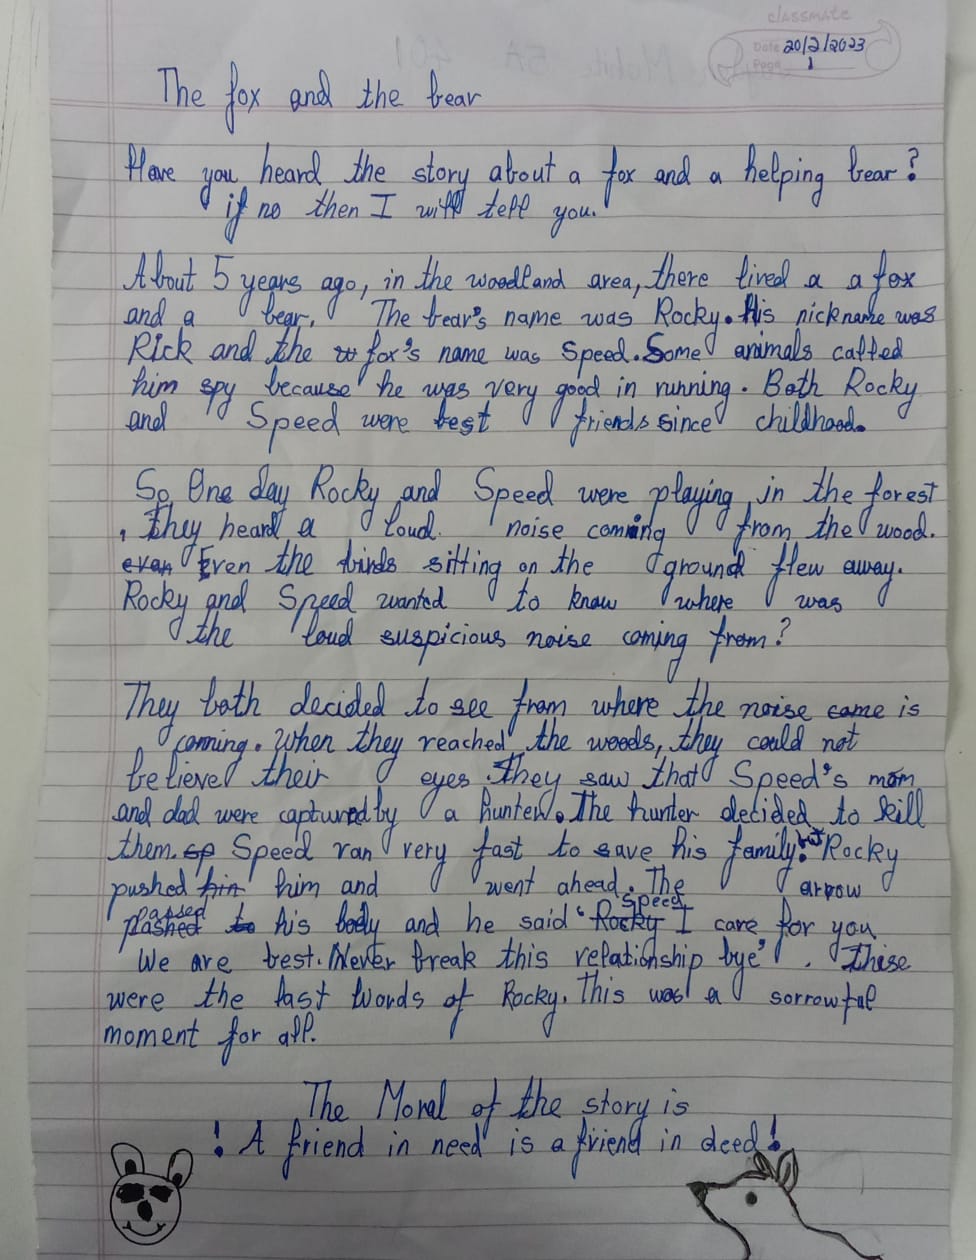 classmate
Date 20/2/2023
Page 1
The fox and the bear
Have you heard the story about a fox and a helping bear?
if no then I will tell you.
About 5 years ago, in the woodland area, there lived a a fox
and a bear. The bear's name was Rocky. His nickname was
Rick and the fox's name was Speed. Some animals called
him spy because he was very good in running. Both Rocky
and Speed were best friends since childhood.
So One day Rocky and Speed were playing in the forest
, They heard a loud noise coming from the wood.
even Even the birds sitting on the ground flew away.
Rocky and Speed wanted to know where was
the loud suspicious noise coming from?
They both decided to see from where the noise came is
coming. When they reached the woods, they could not
believe their eyes. They saw that Speed's mom
and dad were captured by a hunter. The hunter decided to kill
them. sp Speed ran very fast to save his family. But Rocky
pushed him him and went ahead. The arrow
passed
plashed to his body and he said ‘Rocky Speed I care for you
We are best. Never break this relationship bye’. These
were the last words of Rocky. This was a sorrowful
moment for all.
The Moral of the story is
! A friend in need is a friend in deed!